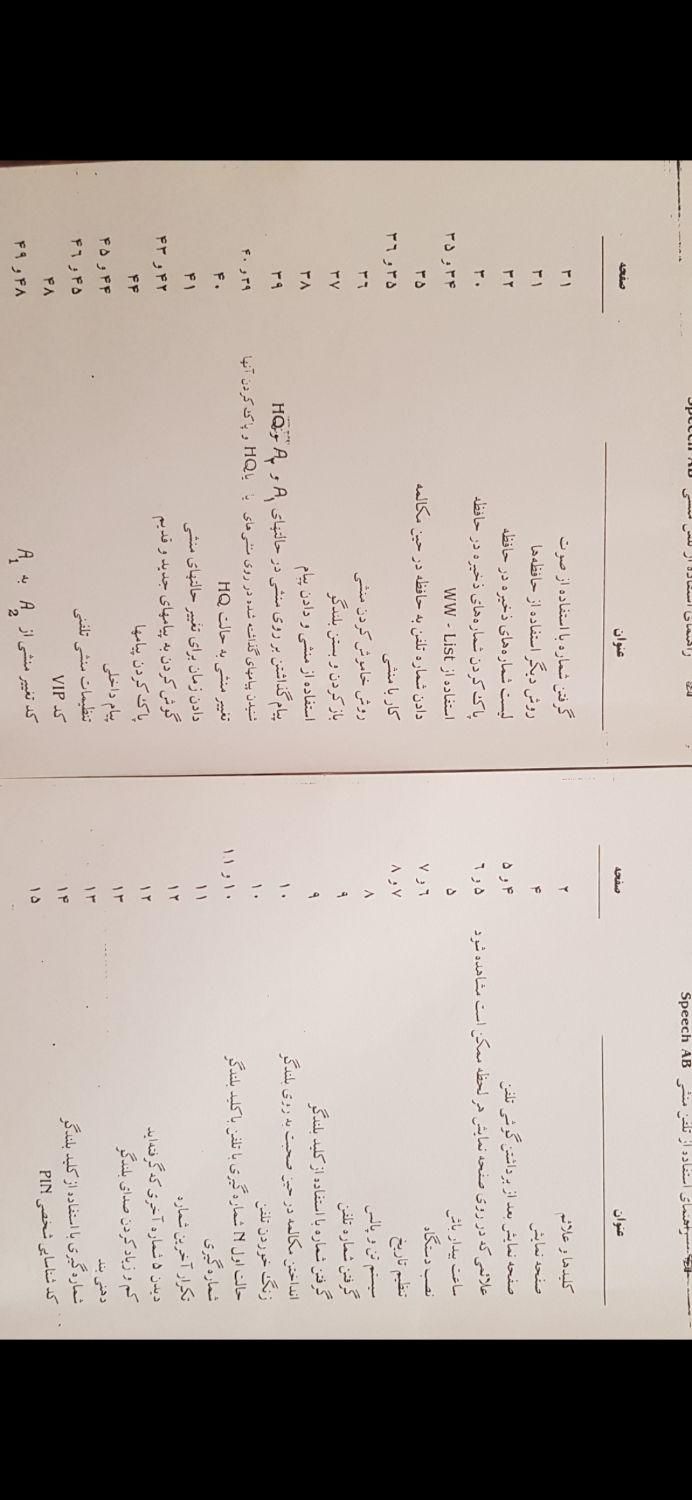 راهنمای استفاده از تلفن منشی Speech AB
عنوان صفحه
کلیدها و علائم ۲
صفحه نمایش ۴
صفحه نمایش بعد از برداشتن گوشی تلفن ۴ و ۵
علائمی که در روی صفحه نمایش هر لحظه ممکن است مشاهده شود ۵ و ۶
ساعت بیدار باش ۵
نصب دستگاه ۶ و ۷
تنظیم تاریخ ۷ و ۸
سیستم تن و پالس ۸
گرفتن شماره تلفن ۹
گرفتن شماره با استفاده از کلید بلندگو ۹
انداختن مکالمه در حین صحبت به روی بلندگو ۱۰
زنگ خوردن تلفن ۱۰
حالت اول N شماره گیری با تلفن یا کلید بلندگو ۱۰ و ۱۱
شماره گیری ۱۱
تکرار آخرین شماره ۱۲
دیدن ۵ شماره آخری که گرفته‌اید ۱۲
کم و زیاد کردن صدای بلندگو ۱۳
دهنی بند ۱۳
شماره گیری با استفاده از کلید بلندگو ۱۴
کد شناسایی شخصی PIN ۱۵
راهنمای استفاده از تلفن منشی Speech AB
عنوان صفحه
گرفتن شماره با استفاده از صوت ۳۱
روش دیگر استفاده از حافظه‌ها ۳۱
لیست شماره‌های ذخیره در حافظه ۳۲
پاک کردن شماره‌های ذخیره در حافظه ۳۰
استفاده از WW - List ۳۴ و ۳۵
دادن شماره تلفن به حافظه در حین مکالمه ۳۵
کار با منشی ۳۵ و ۳۶
روش خاموش کردن منشی ۳۶
باز کردن و بستن بلندگو ۳۷
استفاده از منشی و دادن پیام ۳۸
پیام گذاشتن بر روی منشی در حالتهای A₁ و A₂ و HQ ۳۹
شنیدن پیامهای گذاشت شده در روی منشی‌های یا HQ و پاک کردن آنها ۳۹ و ۴۰
تغییر منشی به حالت HQ ۴۰
دادن زمان برای تغییر حالتهای منشی ۴۱
گوش کردن به پیامهای جدید و قدیم ۴۲ و ۴۳
پاک کردن پیامها ۴۴
پیام داخلی ۴۴ و ۴۵
تنظیمات منشی تلفنی ۴۵ و ۴۶
کد VIP ۴۸
کد تغییر منشی از A₂ به A₁ ۴۸ و ۴۹